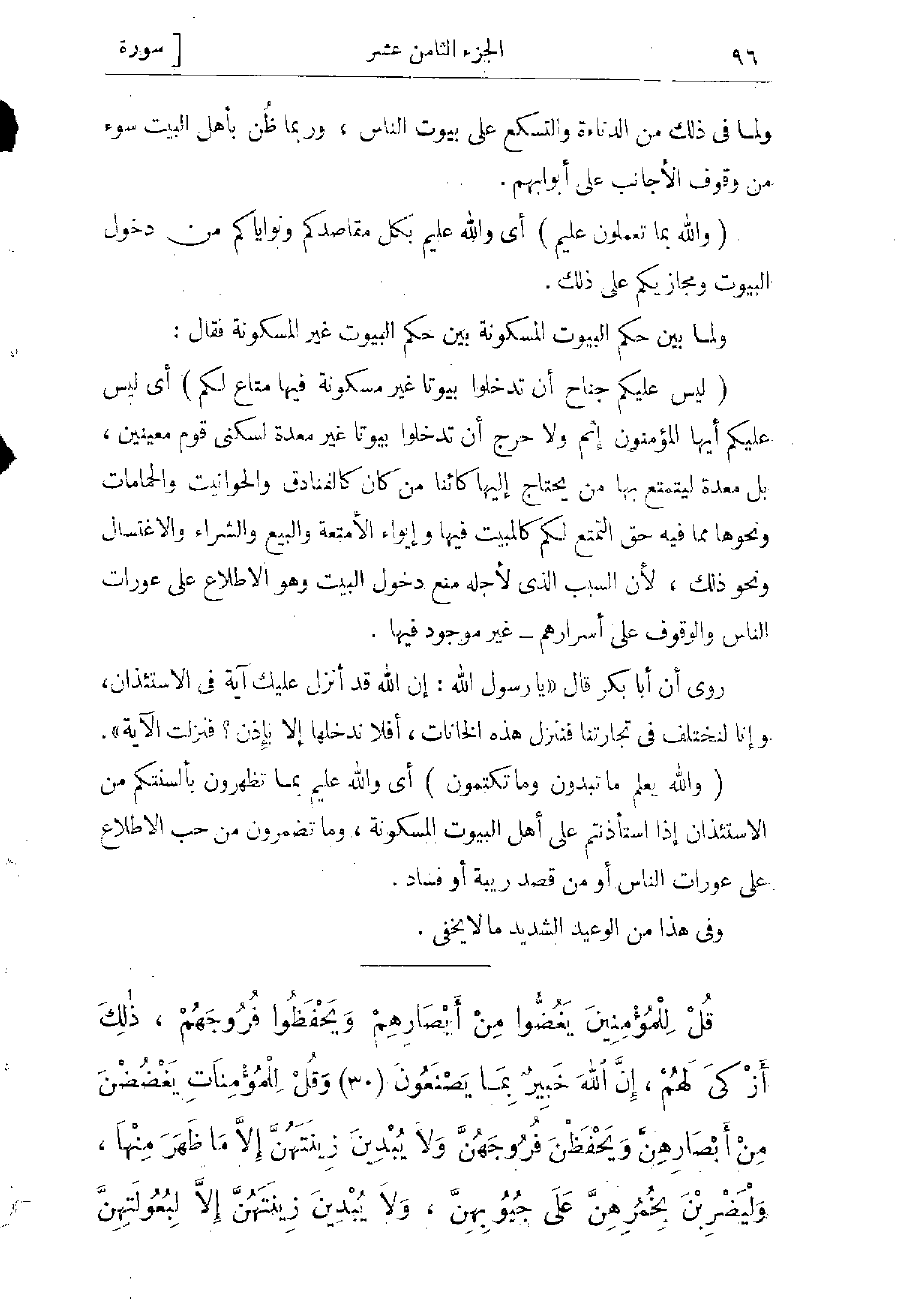 ٩٦ الجزء الثامن عشر [ سورة
ولما فى ذلك من الدناءة والتسكع على بيوت الناس ، وربما ظُن بأهل البيت سوء
من وقوف الأجانب على أبوابهم .
( والله بما تعملون عليم ) أى والله عليم بكل مقاصدكم ونواياكم من دخول
البيوت ومجازيكم على ذلك .
ولما بين حكم البيوت المسكونة بين حكم البيوت غير المسكونة فقال :
( ليس عليكم جناح أن تدخلوا بيوتا غير مسكونة فيها متاع لكم ) أى ليس
عليكم أيها المؤمنون إثم ولا حرج أن تدخلوا بيوتا غير معدة لسكنى قوم معينين ،
بل معدة ليتمتع بها من يحتاج إليها كائنا من كان كالفنادق والحوانيت والحمامات
ونحوها مما فيه حق التمتع لكم كالمبيت فيها وإيواء الأمتعة والبيع والشراء والاغتسال
ونحو ذلك ، لأن السبب الذى لأجله منع دخول البيت وهو الاطلاع على عورات
الناس والوقوف على أسرارهم – غير موجود فيها .
روى أن أبا بكر قال «يا رسول الله : إن الله قد أنزل عليك آية فى الاستئذان،
وإنا لنختلف فى تجارتنا فننزل هذه الخانات ، أفلا ندخلها إلا بإذن ؟ فنزلت الآية» .
( والله يعلم ما تبدون وما تكتمون ) أى والله عليم بما تظهرون بألسنتكم من
الاستئذان إذا استأذنتم على أهل البيوت المسكونة ، وما تضمرون من حب الاطلاع
على عورات الناس أو من قصد ريبة أو فساد .
وفى هذا من الوعيد الشديد ما لا يخفى .
قُلْ لِلْمُؤْمِنِينَ يَغُضُّوا مِنْ أَبْصَارِهِمْ وَيَحْفَظُوا فُرُوجَهُمْ ، ذٰلِكَ
أَزْكَى لَهُمْ ، إِنَّ اللهَ خَبِيرٌ بِمَا يَصْنَعُونَ (٣٠) وَقُلْ لِلْمُؤْمِنَاتِ يَغْضُضْنَ
مِنْ أَبْصَارِهِنَّ وَيَحْفَظْنَ فُرُوجَهُنَّ وَلاَ يُبْدِينَ زِينَتَهُنَّ إِلاَّ مَا ظَهَرَ مِنْهَا ،
وَلْيَضْرِبْنَ بِخُمُرِهِنَّ عَلَى جُيُوبِهِنَّ ، وَلاَ يُبْدِينَ زِينَتَهُنَّ إِلاَّ لِبُعُولَتِهِنَّ